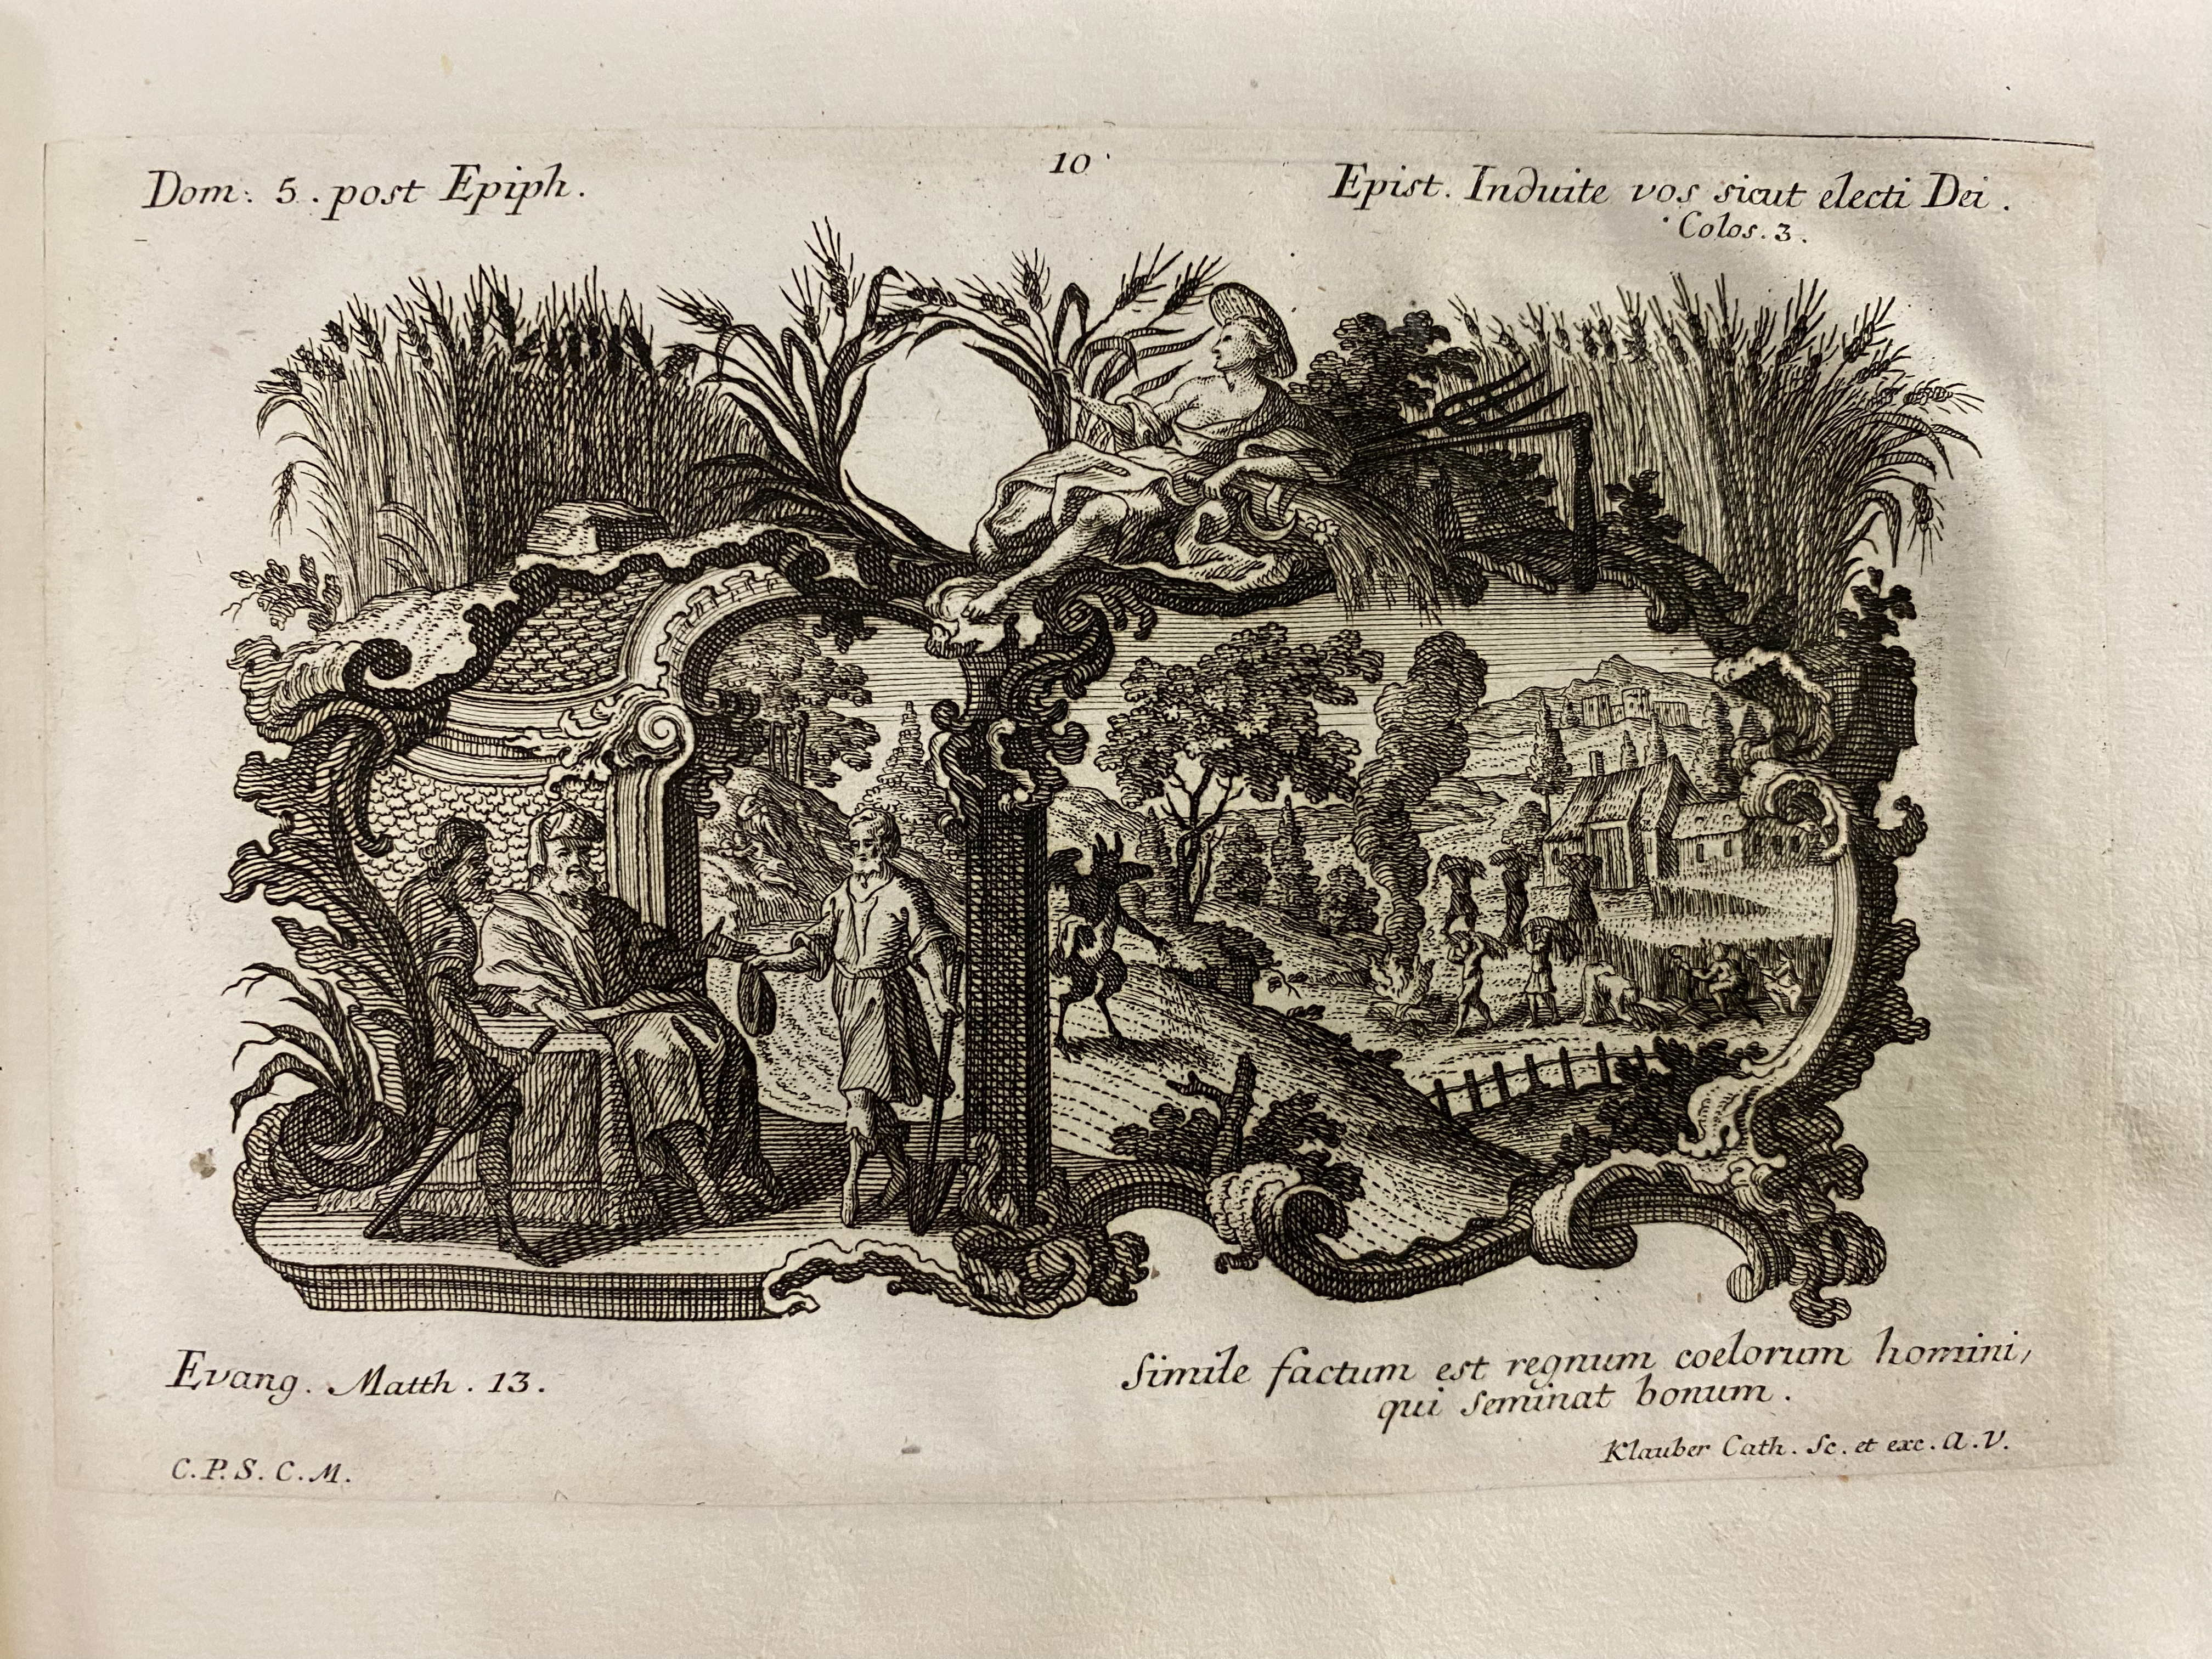 Dom: 5. post Epiph.
10
Epist. Induite vos sicut electi Dei.
Colos. 3.
Evang. Matth. 13.
Simile factum est regnum coelorum homini,
qui seminat bonum.
C.P.S.C.M.
Klauber Cath. Sc. et exc. A.V.